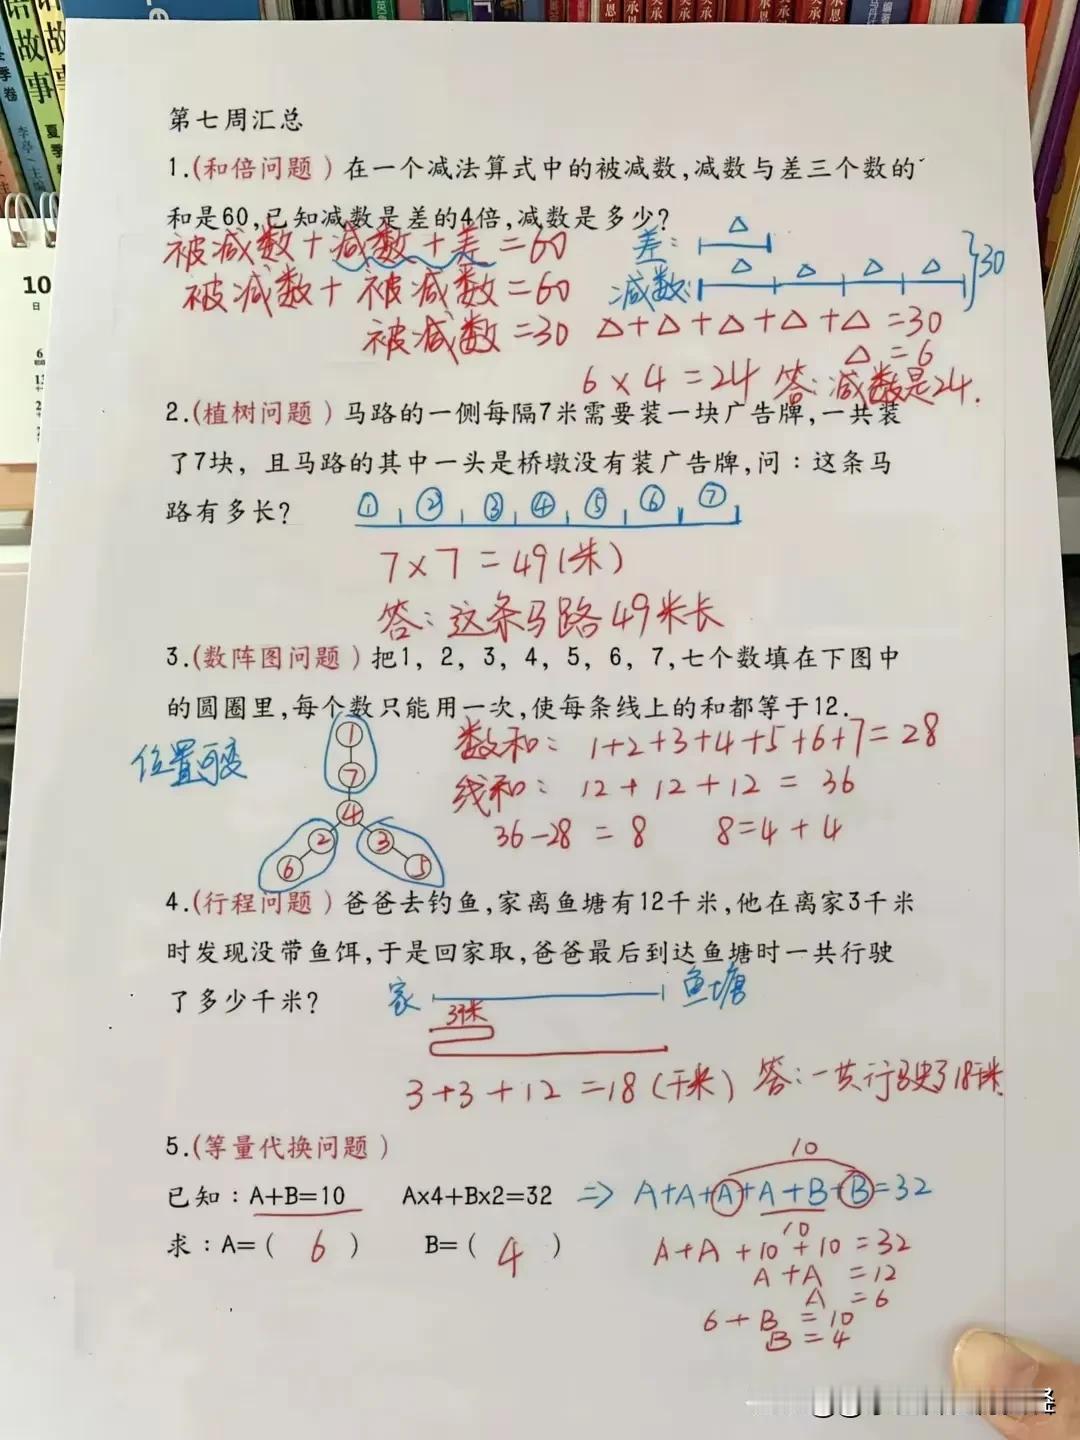 故事
故事
季卷
李亭
主编
夏季
编著
承恩
10
日
6
13
第七周汇总
1.(和倍问题)在一个减法算式中的被减数,减数与差三个数的
和是60,已知减数是差的4倍,减数是多少?
被减数+减数+差=60
差: △
被减数+被减数=60
减数: △ △ △ △ }30
被减数=30 △+△+△+△+△=30
△=6
6×4=24 答:减数是24.
2.(植树问题)马路的一侧每隔7米需要装一块广告牌,一共装
了7块,且马路的其中一头是桥墩没有装广告牌,问:这条马
路有多长? ① ② ③ ④ ⑤ ⑥ ⑦
7×7=49(米)
答:这条马路49米长
3.(数阵图问题)把1, 2, 3, 4, 5, 6, 7,七个数填在下图中
的圆圈里,每个数只能用一次,使每条线上的和都等于12.
位置可变
①
⑦
④
② ③
⑥ ⑤
数和: 1+2+3+4+5+6+7=28
线和: 12+12+12=36
36-28=8 8=4+4
4.(行程问题)爸爸去钓鱼,家离鱼塘有12千米,他在离家3千米
时发现没带鱼饵,于是回家取,爸爸最后到达鱼塘时一共行驶
了多少千米? 家 鱼塘
3千米
3+3+12=18(千米) 答:一共行驶了18千米
5.(等量代换问题)
10
已知:A+B=10 Ax4+Bx2=32 => A+A+A+A+B+B=32
10
求:A=( 6 ) B=( 4 ) A+A+10+10=32
A+A=12
A=6
6+B=10
B=4